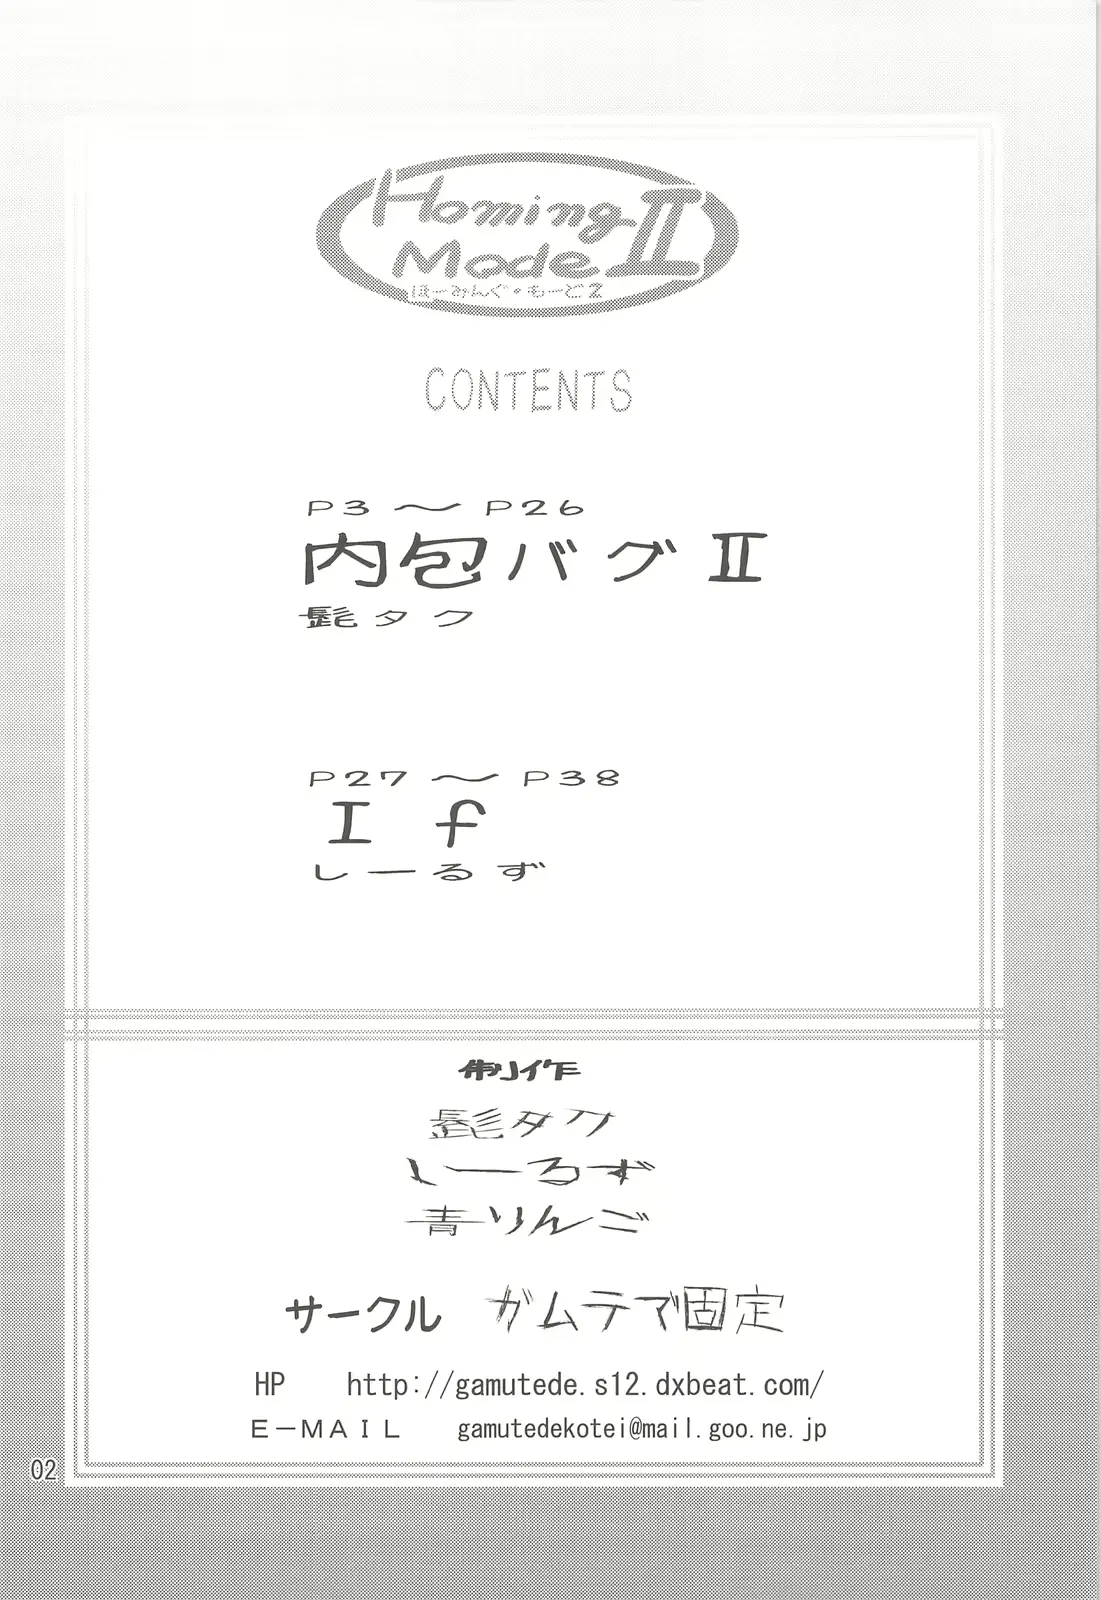 Homing
Mode II
ほーみんぐ・もーど2
CONTENTS
P3～P26
内包バグⅡ
髭タク
P27～P38
If
しーるず
制作
髭タク
しーるず
青りんご
サークル ガムテマ固定
HP http://gamutede.s12.dxbeat.com/
E-MAIL gamutedekotei@mail.goo.ne.jp
02